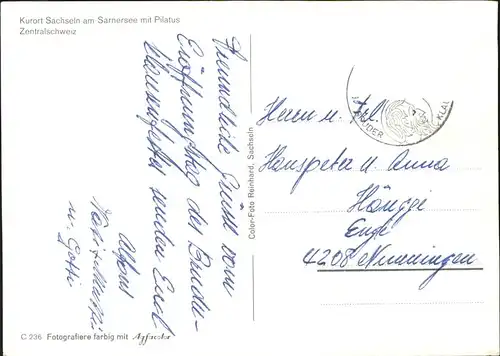 Kurort Sachseln am Sarnersee mit Pilatus
Zentralschweiz
Freundliche Grüsse vom
Eröffnungstag der Bruder-
Klausengfeier senden Euch
Alfons
u. Gotti
Color-Foto Reinhard, Sachseln
BRUDER KLAUS
Herrn u. Frl.
Hanspeter u. Anna
Hänggi
Engi
4208 Nunningen
C 236 Fotografiere farbig mit Agfacolor